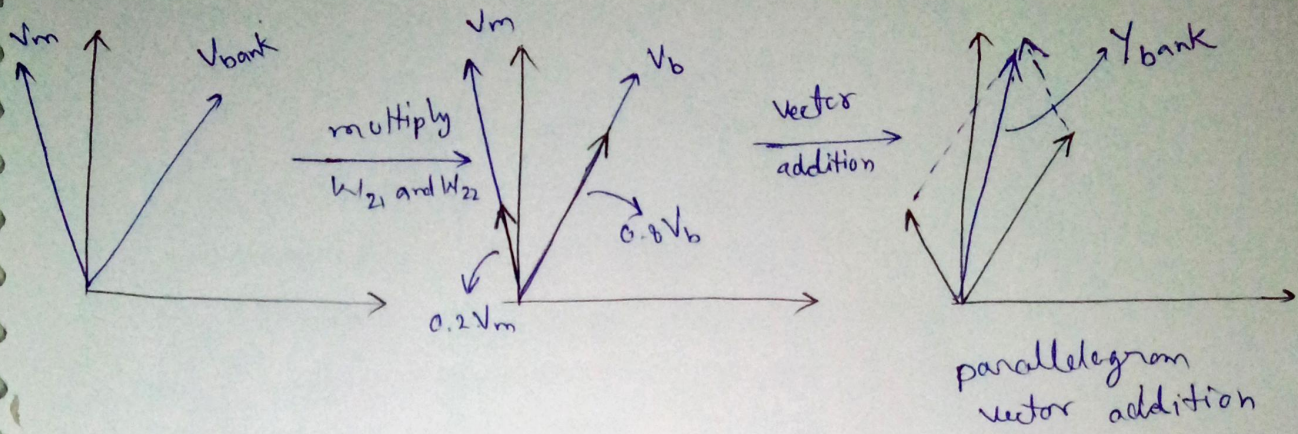 Vm
Vbank
multiply
W21 and W22
Vm
Vb
0.8Vb
0.2Vm
vector
addition
Ybank
parallelogram
vector addition